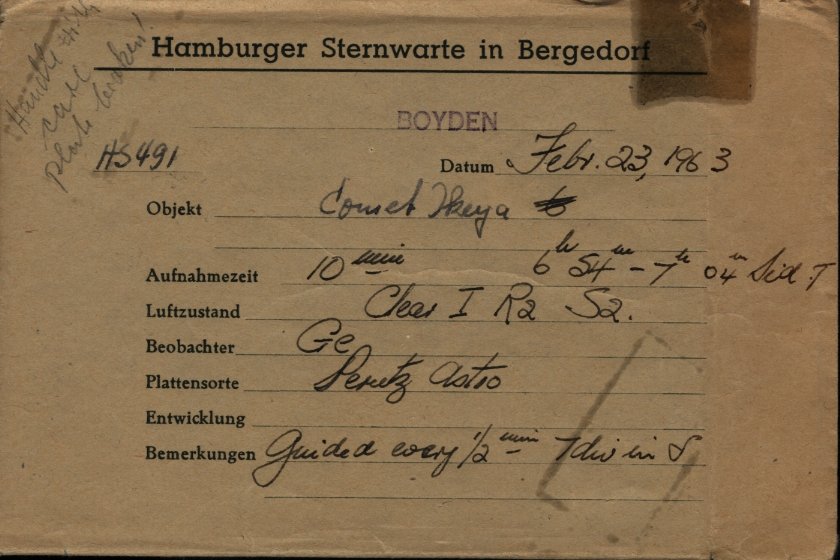 Handle with
care
plate broken!
Hamburger Sternwarte in Bergedorf
BOYDEN
HS491 Datum Febr. 23, 1963
Objekt Comet Ikeya
Aufnahmezeit 10 min 6h 54m - 7h 04m Sid. T
Luftzustand Clear I R2 S2.
Beobachter Ge
Plattensorte Perutz Astro
Entwicklung
Bemerkungen Guided every 1/2 min 7 div in δ